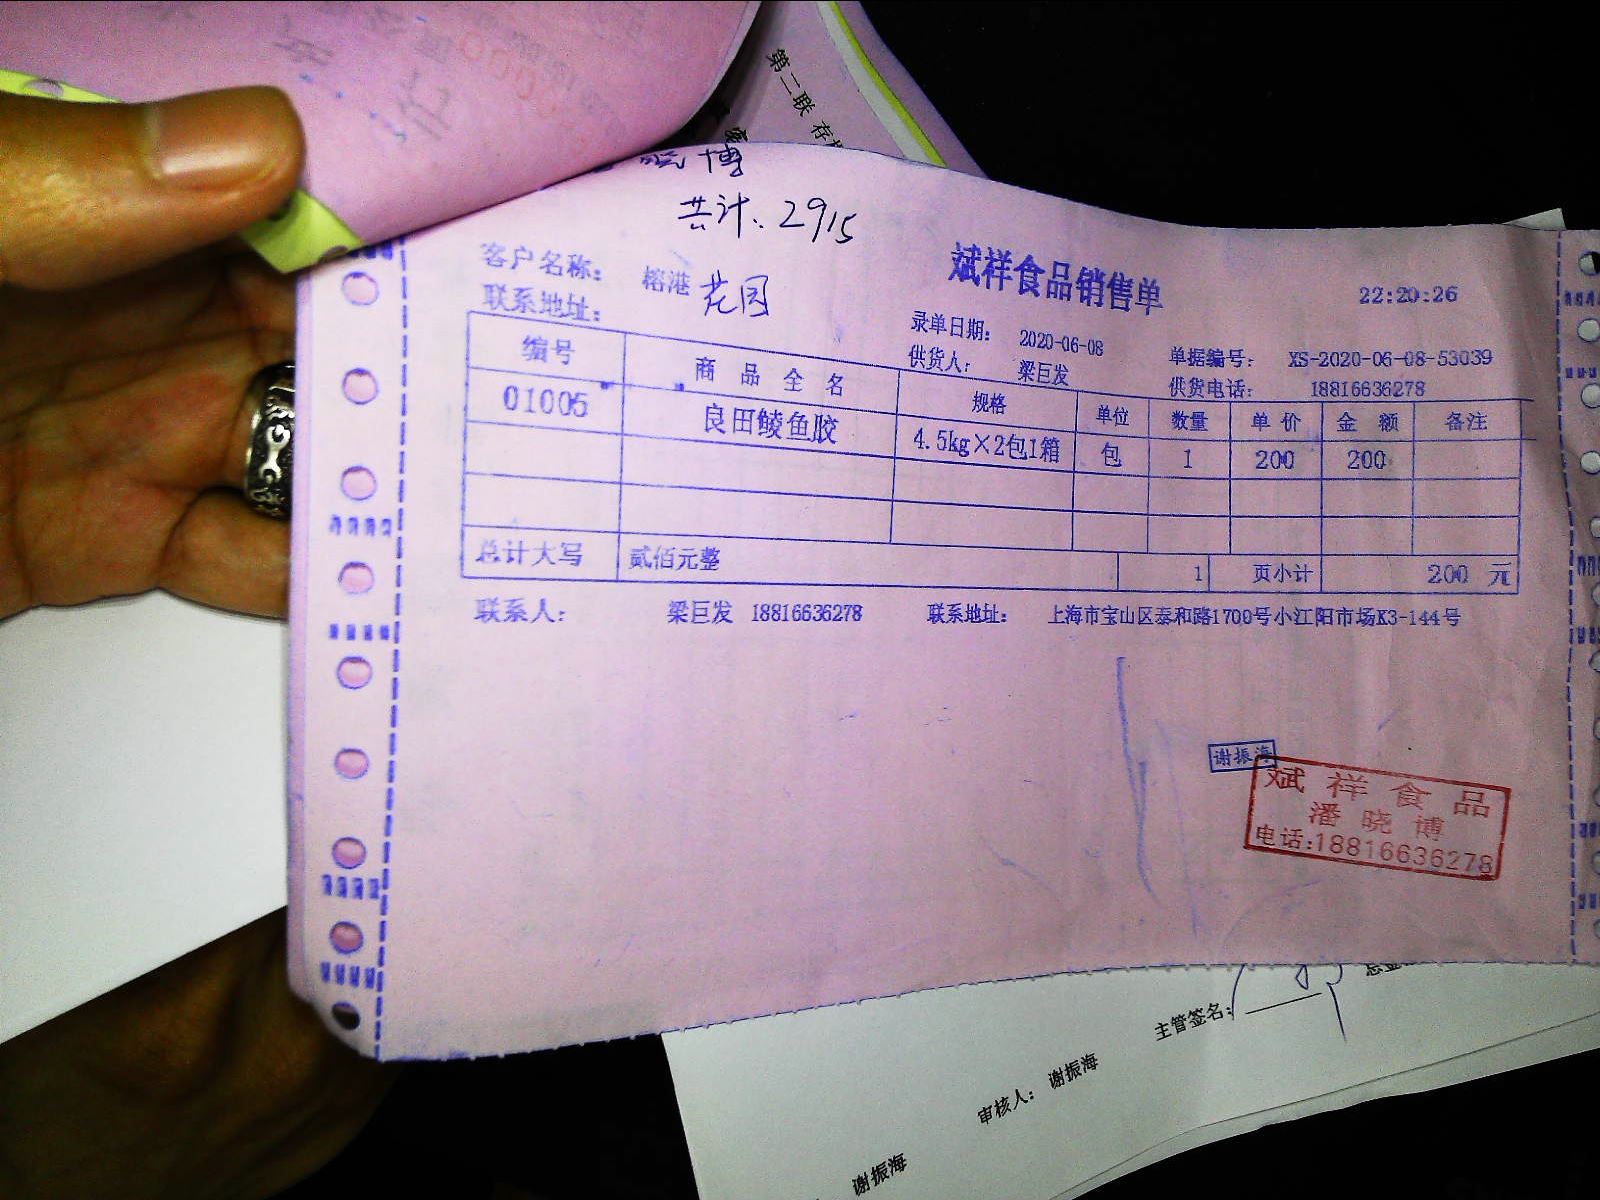 第二联 存
晓博
共计.2915
斌祥食品销售单
22:20:26
客户名称： 榕港 花园
联系地址：
录单日期： 2020-06-08
单据编号： XS-2020-06-08-53039
供货人： 梁巨发
供货电话： 18816636278
编号 商品全名 规格 单位 数量 单价 金额 备注
01005 良田鲮鱼胶 4.5kg×2包1箱 包 1 200 200
总计大写 贰佰元整 1 页小计 200 元
联系人： 梁巨发 18816636278 联系地址： 上海市宝山区泰和路1700号小江阳市场K3-144号
谢振海
斌祥食品
潘晓博
电话:18816636278
主管签名：
审核人： 谢振海
谢振海